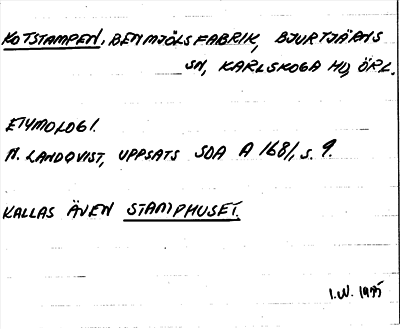 KOTSTAMPEN, BENMJÖLSFABRIK, BJURTJÄRNS
SN, KARLSKOGA HD, ÖRL.
ETYMOLOGI.
N. LANDQVIST, UPPSATS SOA A 1681, s. 9.
KALLAS ÄVEN STAMPHUSET.
I.W. 1975